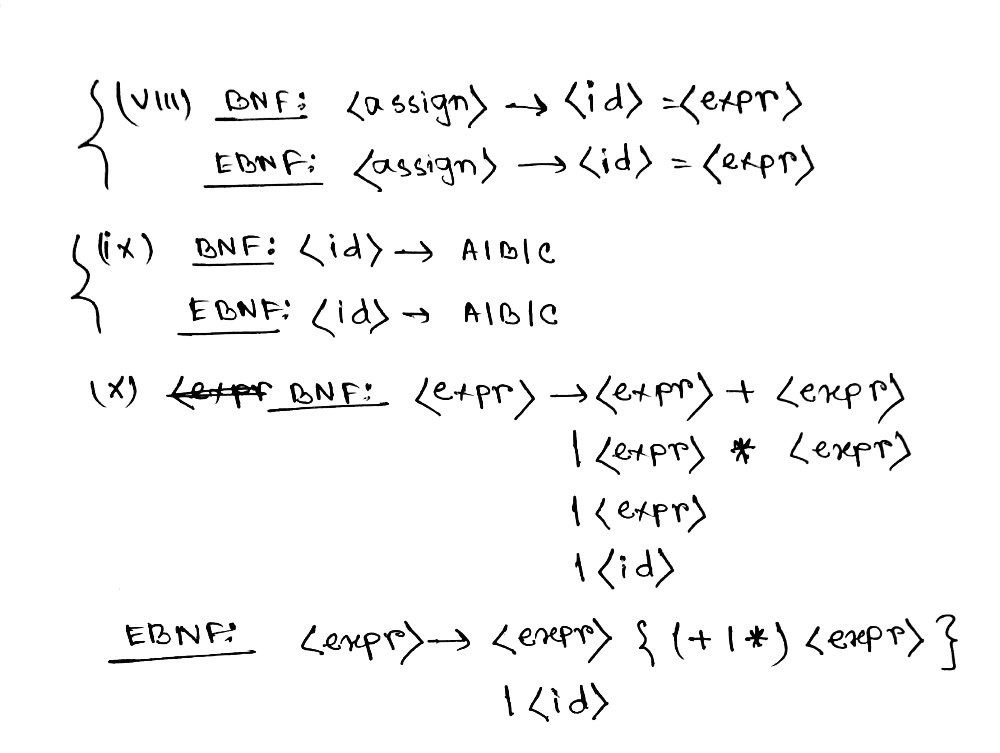 (viii) BNF: <assign> → <id> = <expr>
EBNF: <assign> → <id> = <expr>
(ix) BNF: <id> → A|B|C
EBNF: <id> → A|B|C
(x) <expr BNF: <expr> → <expr> + <expr>
| <expr> * <expr>
| <expr>
| <id>
EBNF: <expr> → <expr> { (+ | *) <expr> }
| <id>